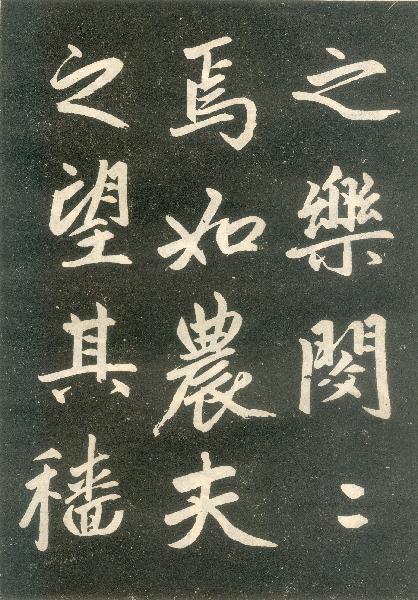 之樂閔〻
焉如農夫
之望其穡